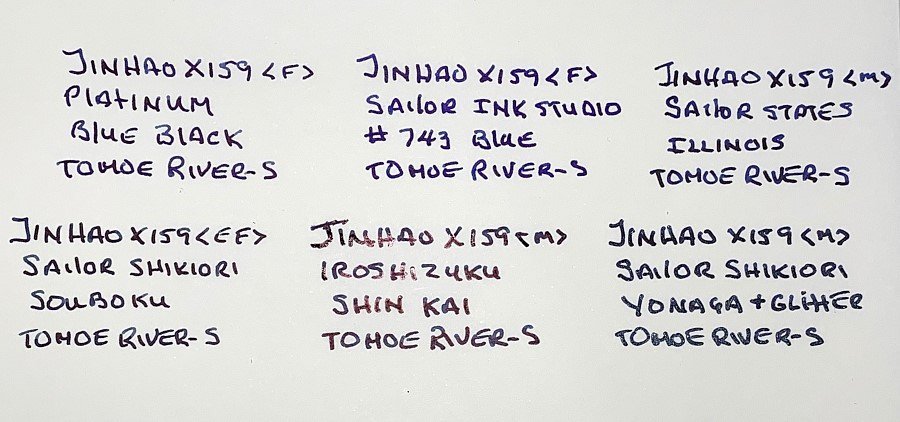 JINHAO X159 <F>
PLATINUM
BLUE BLACK
TOMOE RIVER-S
JINHAO X159 <F>
SAILOR INK STUDIO
# 743 BLUE
TOMOE RIVER-S
JINHAO X159 <M>
SAILOR STATES
ILLINOIS
TOMOE RIVER-S
JINHAO X159 <EF>
SAILOR SHIKIORI
SOUBOKU
TOMOE RIVER-S
JINHAO X159 <M>
IROSHIZUKU
SHIN KAI
TOMOE RIVER-S
JINHAO X159 <M>
SAILOR SHIKIORI
YONAGA + GLITTER
TOMOE RIVER-S